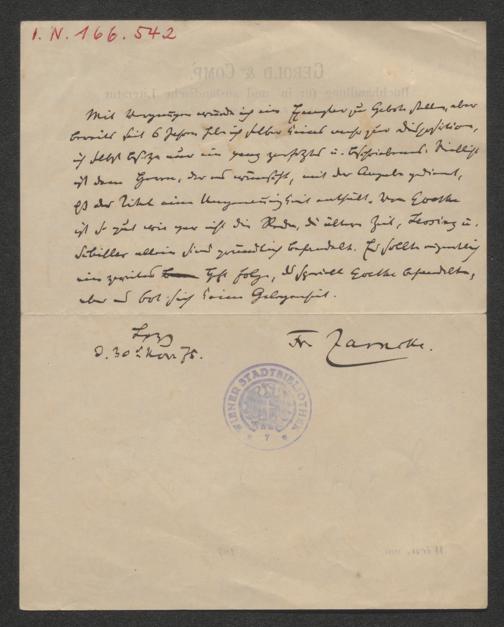 I. N. 166.542
GEROLD & COMP.
Buchhandlung für in- und ausländische Literatur
Mit Vergnügen würde ich ein Exemplar zu Gebote stellen, aber
bereits seit 6 Jahren habe ich selber keines mehr zur Disposition,
ich selbst besitze nur ein ganz zerfetztes u. beschriebenes. Vielleicht
ist dem Herrn, der es wünscht, mit der Angabe gedient,
daß der Titel eine Ungenauigkeit enthält. Von Goethe
ist so gut wie gar nicht die Rede, die ältere Zeit, Lessing u.
Schiller allein sind gründlich behandelt. Es sollte eigentlich
ein zweites Heft folgen, das speciell Goethe behandelte,
aber es bot sich keine Gelegenheit.
Lpzg
d. 30 Nov. 75.
Fr Zarncke.
WIENER STADTBIBLIOTHEK
7